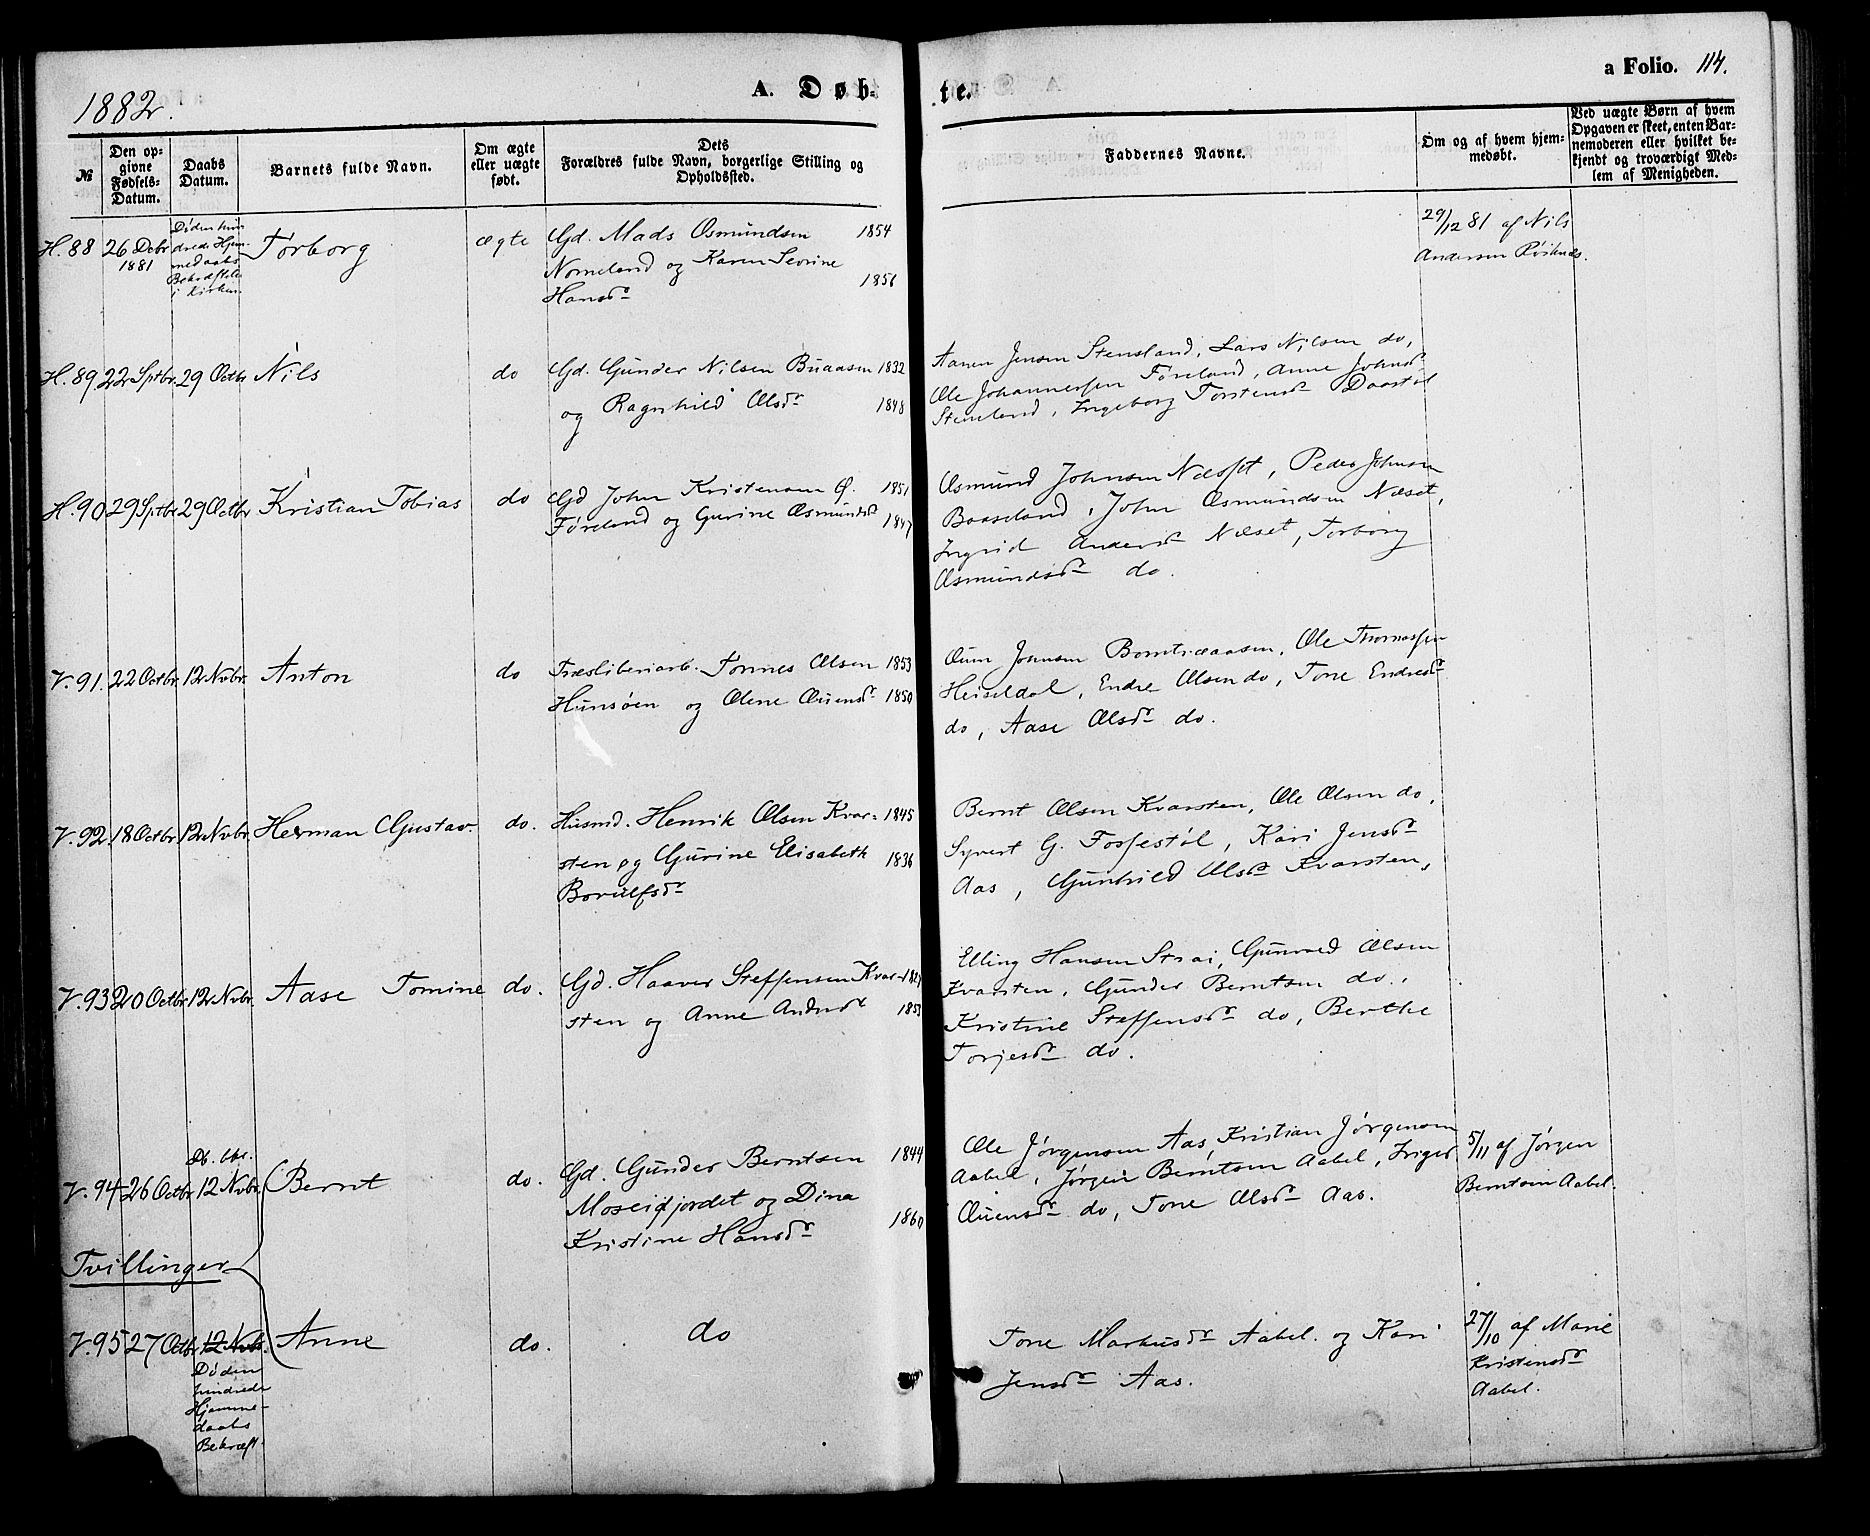 1882.
A. Døbte.
a Folio. 114.
№
Den opgivne Fødsels-Datum.
Daabs Datum.
Barnets fulde Navn.
Om ægte eller uægte født.
Dets Forældres fulde Navn, borgerlige Stilling og Opholdssted.
Faddernes Navne.
Om og af hvem hjemmedøbt.
Ved uægte Børn af hvem Opgaven er skeet, enten Barnemoderen eller hvilket bekjendt og troværdigt Medlem af Menigheden.
H. 88 26 Debr 1881
Døden hindrede Hjemmedaabs Bekræftelse i Kirken
Torborg ægte
Gd. Mads Osmundsen 1854
Nomeland og Karen Severine 1856
Hansdr
29/12 81 af Nils
Andersen
H. 89. 22 Sptbr. 29 Octbr Nils do
Gd. Gunder Nilsen Buaasen 1832
og Ragnhild Olsdr 1848
Aanen Jensen Stensland, Lars Nilsen do,
Ole Johannessen Føreland, Anne Johnsdr
Stensland, Ingeborg Torstensdr Daastøl
H. 90 29 Sptbr 29 Octbr Kristian Tobias do
Gd John Kristensen Ø. 1851
Føreland og Gurine Osmundsdr 1847
Osmund Johnsen Næsset, Peder Johnsen
Baaseland, John Osmundsen Næset,
Ingrid Andersdr Næset, Torborg
Osmundsdr do.
V. 91. 22 Octbr. 12 Nvbr. Anton do
Træsliberiarb. Tønnes Olsen 1853
Hunsøen og Olene Ouensdr 1850
Oun Johnsen, Ole Thomassen
Heiseldal, Endre Olsen do, Tone Endresdr
do, Aase Olsdr do.
V. 92. 18 Octbr. 12 Nvbr. Herman Gustav. do.
Husmd. Henrik Olsen Kvar- 1845
sten og Gurine Elisabeth 1836
Borulfsdr
Bernt Olsen Kvarsten, Ole Olsen do,
Syvert G. Fossestøl, Kari Jensdr
Aas, Gunhild Olsdr Kvarsten,
V. 93 20 Octbr. 12 Nvbr. Aase Tomine do.
Gd. Haaver Steffensen Kvar-
sten og Anne
Elling Hansen Strai, Gunvald Olsen
Kvarsten, Gunder Berntsen do.,
Kristine Steffensdr do, Berthe
Torjesdr do.
V. 94 26 Octbr. 12 Nvbr. Bernt do.
Gd. Gunder Berntsen 1844
Moseidjordet og Dina
Kristine Hansdr 1860
Ole Jørgensen Aas, Kristian Jørgensen
Aabel, Jørgen Berntsen Aabel, Inger
Ouensdr do, Tone Olsdr Aas.
5/11 af Jørgen
Berntsen Aabel.
Tvillinger
V. 95 27 Octbr 12 Nvbr. Anne do. do
Døden hindrede Hjemmedaabs Bekræft.
Tone Markusdr Aabel. og Kari
Jensdr Aas.
27/10 af Marie
Kristensdr
Aabel.